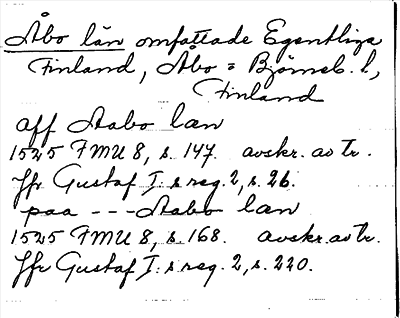 Åbo län omfattade Egentliga
Finland, Åbo = Björneb. l,
Finland
aff Aabo læn
1525 FMU 8, s. 147. avskr. av tr.
Jfr Gustaf I: s reg. 2, s. 26.
paa - - - Aabo læn
1525 FMU 8, s. 168. avskr. av tr.
Jfr Gustaf I: s reg. 2, s. 220.